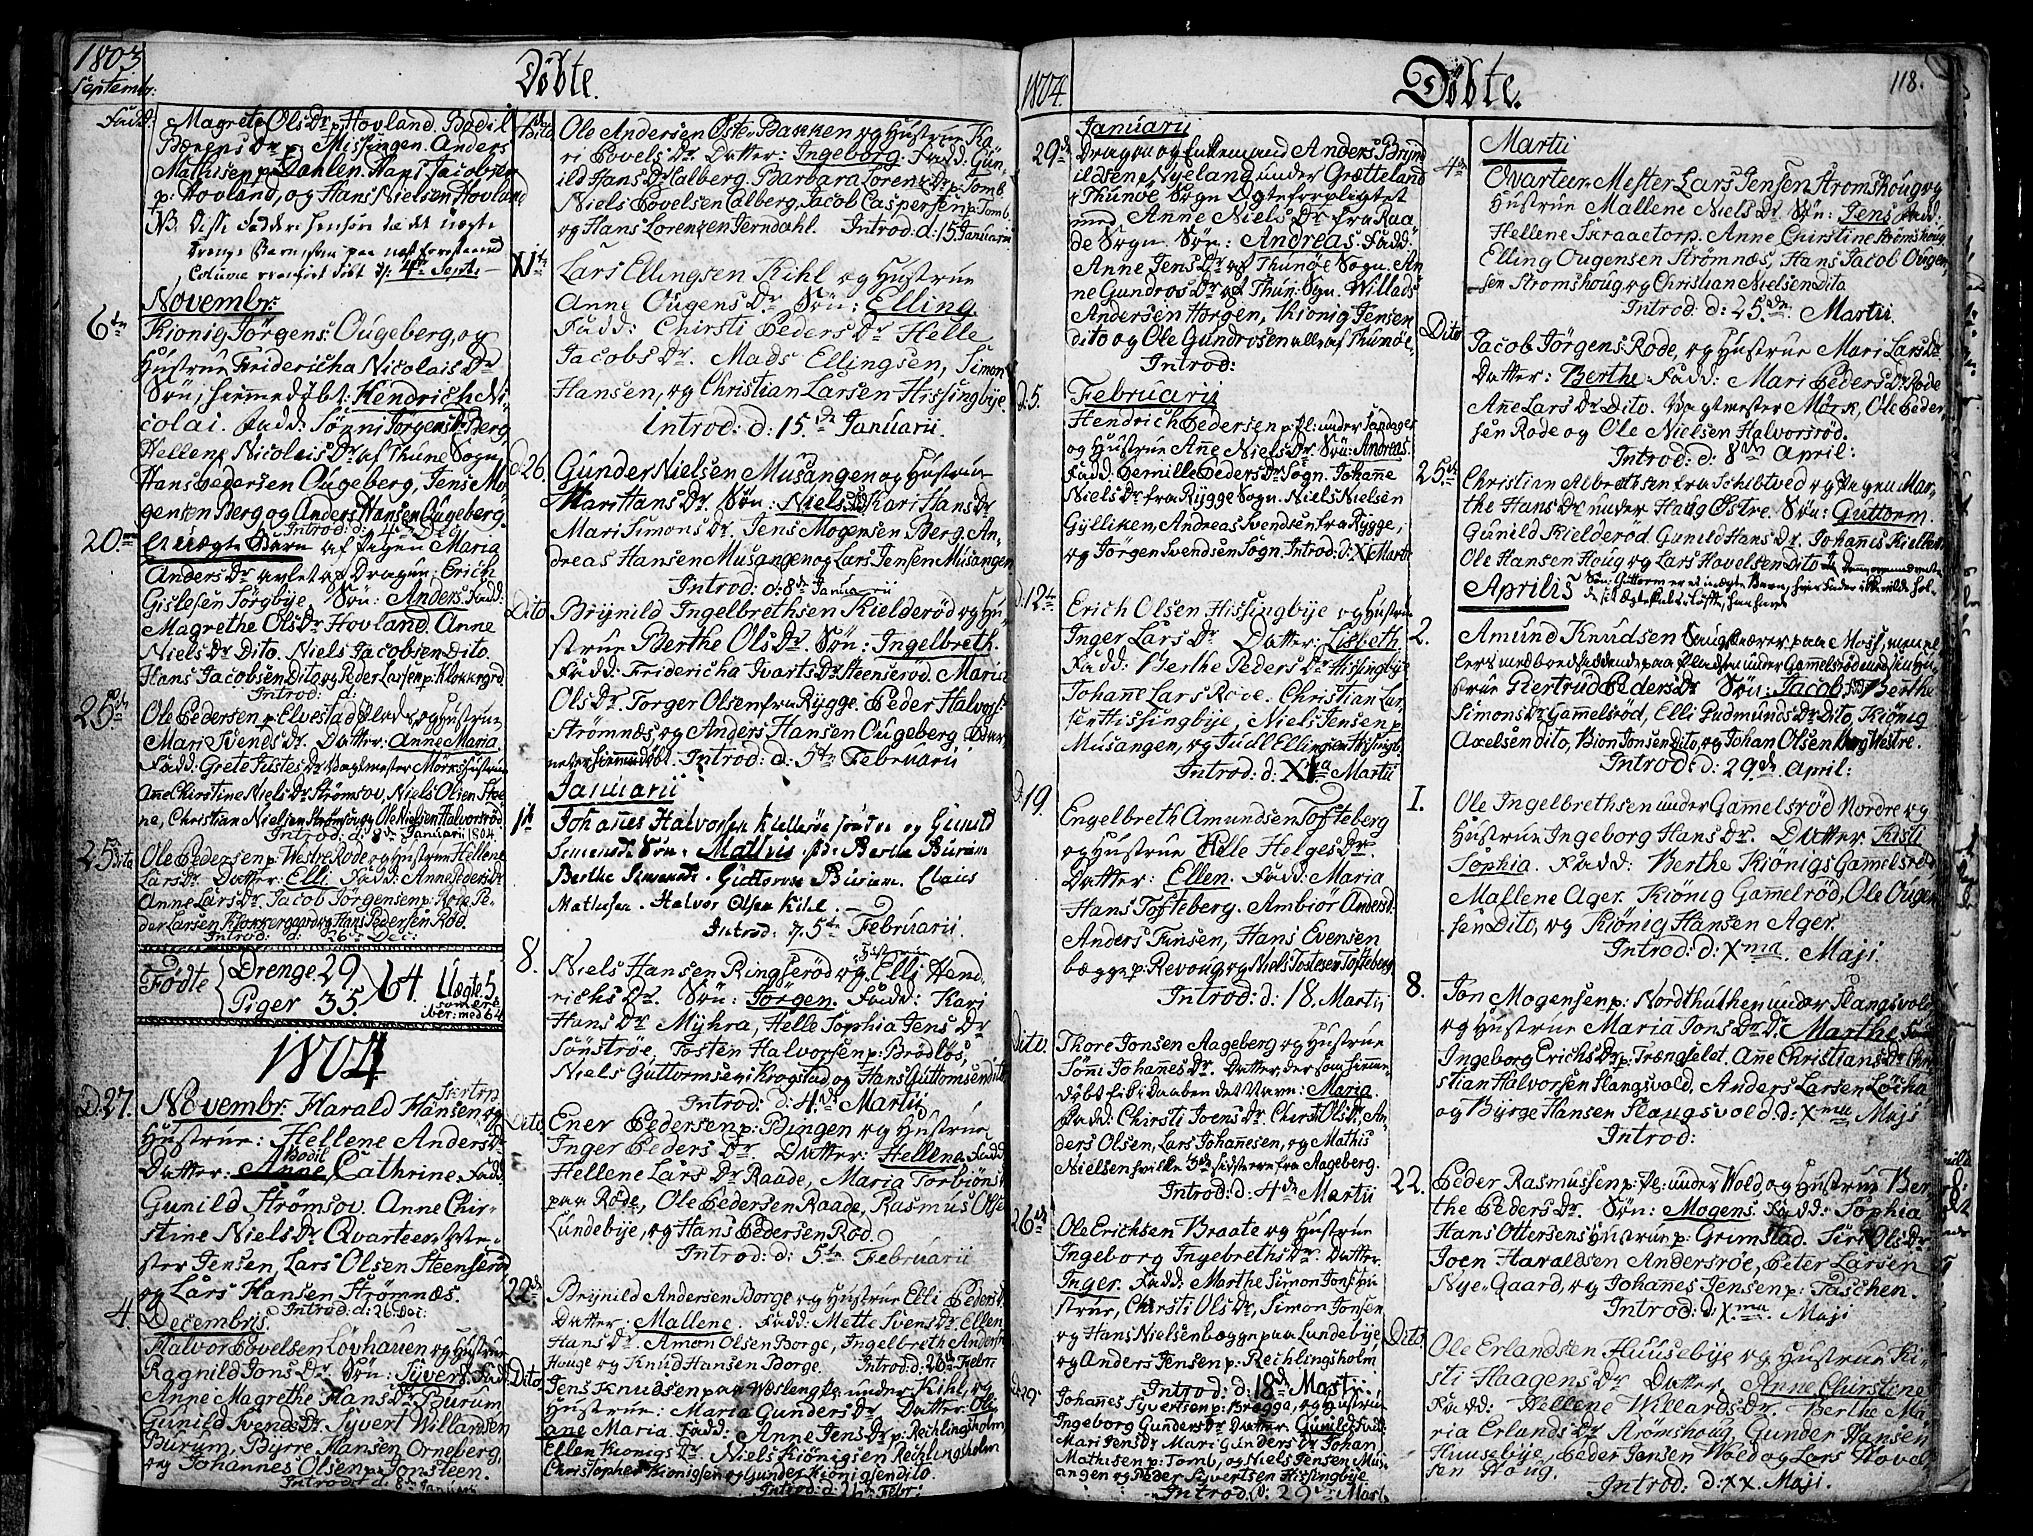 1803
Septembr:
Døbte.
Fadd: Magrete Ols Dr p: Hovland. Bodil
Børens Dr p: Missingen. Anders
Mathisen p: Dahlen. Hans Jacobsen
p: Hovland, og Hans Nielsen Hovland
NB. Disse Fadderes henhører til det uægte
Drenge Barn, som paa næst forestaaende
Columne er anført sidst d: 4de Septr
Novembr:
6te
Kionig Jörgens: Ougeberg, og
Hustrue Fridericha Nicolais Dr
Søn, hiemmedöbt: Hendrich Ni-
colai. Fadd: Sönni Jörgens Dr Berg,
Hellene Nicolais Dr af Thune Sogn
Hans Pedersen Ougeberg, Jens Mo-
gensen Berg og Anders Hansen Ougeberg.
Introd: d: 4de Dec:
20.
Et uægte Barn af Pigen Maria
Anders Dr avlet af Dragun: Erich
Gislesen Törgbije. Søn: Anders. Fadd:
Magrethe Ols Dr Hovland. Anne
Niels Dr Dito. Niels Jacobsen Dito.
Hans Jacobsen Dito, og Peder Larsen p: Klokkergrd.
Introd: d:
25de
Ole Pedersen p: Elvestad Plads, og Hustrue
Mari Svens Dr. Datter: Anne Maria
Fadd: Grete Justes Dr Vagtmester Mörks Hustrue
Añe Chirstine Niels Dr Strömsov, Niels Olsen Stee-
ne, Christian Nielsen Strömsov, og Ole Nielsen Halvorsröd
Introd: d: 8de Januarii 1804
25 Dito
Ole Pedersen p: Westre Rode og Hustrue Hellene
Lars Dr. Datter: Elli. Fadd: Anne Peders Dr
Anne Lars Dr. Jacob Jörgensen p: Rode. Pe-
der Larsen Klokkergaard, og Hans Pedersen Röd.
Introd: d: 26de Dec:
Födte Drenge 29
Piger 35. 64. Uægte 5
som er be-
ber: med 64
1804
D. 27.
Novembr: Harald Hansen Skirtrp og
Hustrue: Hellene Anders Dr
Datter: Anne Bodil Cathrine Fadd:
Gunild Strömsov. Anne Chir-
stine Niels Dr. Qvarteer Me-
ster Jensen, Lars Olsen Steenseröd
og Lars Hansen Strömnæs.
Introd: d: 26 Dec:
4.
Decembris
Halvor Povelsen Lövhauen og Hustrue
Ragnild Jons Dr. Søn: Syver. Fadd:
Anne Magrethe Hans Dr Burum
Gunild Svends Dr. Syvert Willandsen
Burum, Byrre Hansen Orneberg,
og Johannes Olsen p: Jonsteen.
Introd: d: 8de Januarii
Dito
Ole Andersen Østre Bakken og Hustrue Ka-
ri Povels Dr. Datter: Ingeborg. Fadd: Gün-
ild Hans Dr Calberg. Barbara Lorens Dr p: Tomb.
Niels Povelsen Calberg, Jacob Caspersen p: Tomb.
og Hans Lorensen Jerndahl. Introd: d: 15. Januarii
XIte
Lars Ellingsen Kihl og Hustrue
Anne Ougens Dr. Søn: Elling.
Fadd: Chirsti Peders Dr. Helle
Jacobs Dr. Mads Ellingsen, Simon
Hansen, og Christian Larsen Hissingbije.
Introd: d: 15. de Januarii.
d. 26.
Gunder Nielsen Musangen og Hustrue
Mari Hans Dr. Søn: Niels. Fadd: Kari Hans Dr
Mari Simons Dr. Jens Mogensen Berg. An-
dreas Hansen Musangen og Lars Jensen Musangen
Introd: d: 8de Januarii
Dito
Brynild Ingelbrethsen Kielderöd og Hu-
strue Berthe Ols Dr. Søn: Ingelbreth.
Fadd: Fridericha Ivarts Dr Steenseröd. Maria
Ols Dr. Torger Olsen fra Rygge. Peder Halvors:
Strömnæs, og Anders Hansen Ougeberg. Bar-
net er hiemmedöbt. Introd: d: 5te Februarii
Januarii
1st
Johañes Halvorsen Kiellerøe söndre og Gunild
Simensdr. Søn: Mathis. fad: Berthe Burum
Berthe Simensdr. Guttorm Burum. Claus
Mathisen. Halvor Olsen Kihl.
Introd: d: 5te Februarii.
8.
Niels Hansen Ringseröd og Hustrue Elli Hend-
richs Dr. Søn: Jörgen. Fadd: Kari
Hans Dr Myhra, Helle Sophia Jens Dr
Sönströe, Tosten Halvorsen p: Brödlös,
Niels Guttormsen i Krogstad og Hans Guttormsen dito
Introd: d: 4. de Martii
Dito
Ener Pedersen p: Bingen og Hustrue
Inger Peders Dr. Datter: Hellene Fadd:
Hellene Lars Dr Raade, Maria Torbiöns Dr
paa Rode, Ole Pedersen Raade, Rasmus Olse
Lundebije, og Hans Pedersen Röd.
Introd: d: 5te Februarii
22de
Brynild Andersen Borge og Hustrue Elli Peders Dr.
Datter: Mallene. Fadd: Mette Svens Dr. Ellen
Hans Dr. Amon Olsen Borge, Ingelbreth Anders:
Houge og Knud Hansen Borge. Introd: d: 28de Febr:
Dito
Jens Knudsen paa Wæslengke under Kihl, og
Hustrue: Maria Gunders Dr. Datter: Ole-
ane Maria. Fadd: Anne Jens Dr p: Rechlingsholm
Ellen Kionigs Dr. Niels Kiönigsen Rechlingsholm
Christopher Kionigsen og Gunder Kionigsen dito
Introd: d: 26de Febr:
1804.
Døbte.
118.
Januarii
29de
Dragon og Enkemand Anders Brynd
ildsen Nyelang under Grætteland
i Thunøe Sogn Ægteforpligtet
med Anne Niels Dr fra Raa-
de Sogn. Søn: Andreas. Fadd:
Anne Jens Dr af Thunøe Sogn. An-
ne Gundros Dr af Thun: Sogn. Willads
Andersen Horgen, Kionig Jensen
dito og Ole Gundrosen alle af Thunøe.
Introd:
d. 5.
Februarii
Hendrich Pedersen p: Pl: under Sandager
og Hustrue Añe Niels Dr. Søn: Andreas.
Fadd: Pernille Peders Dr Sogn. Johañe
Niels Dr fra Rygge Sogn. Niels Nielsen
Gylliken, Andreas Svendsen fra Rygge,
og Jörgen Svendsen Sogn. Introd: d: XI Martii
d. 12te
Erich Olsen Hissingbije og Hustrue
Inger Lars Dr Datter: Lisbeth.
Fadd: Berthe Peders Dr Hissingbije
Johañe Lars Rode. Christian Lar-
sen Hissingbije, Niels Jensen p:
Musangen, og Judl Ellingsen Hissingb:
Introd: d: XIma Martii
d. 19.
Engelbreth Amundsen Tofteberg
og Hustrue Helle Helges Dr.
Datter: Ellen. Fadd: Maria
Hans Tofteberg. Ambiör Andersd:
Anders Finsen, Hans Evensen
begge p: Revoug, og Niels Tostesen Tofteberg
Introd: d: 18. Martii
Dito.
Thore Jonsen Aageberg og Hustrue
Söni Johañes Dr. Datter, der som hiemme
döbt fik i Daaben det Navn: Maria
Fadd: Chirsti Joens Dr. Chirsti Ols Dr, An-
ders Olsen, Lars Johañesen, og Mathis
Nielsen hvilke 3de sidste ere fra Aageberg.
Introd: d: 4de Martii
26de
Ole Erichsen Braate og Hustrue
Ingeborg Ingebreths Dr. Datter.
Inger. Fadd: Marthe Simon Jons hu-
strue, Chirsti Ols Dr, Simon Jonsen
og Hans Nielsen begge paa Lundebije
og Anders Jensen p: Rechlingsholm
Introd: d: 18de Martii
d. 29de
Johañes Syvertsen p: Brægge, og Hustrue
Ingeborg Gunders Dr Datter Gunild Fadd:
Mari Jens Dr Mari Gunders Dr Johan
Mathisen p: Tomb, og Niels Jensen Mus-
angen og Peder Syvertsen Hissingbije
Introd: d: 29de Mart.
Martii
4de
Qvarteer Mester Lars Jensen Strömshoug og
Hustrue Mallene Niels Dr. Søn: Jens Fadd:
Hellene Skraatorp. Anne Chirstine Strömshoug
Elling Ougensen Strömnæs, Hans Jacob Ougen-
sen Strömshoug og Christian Nielsen Dito
Introd: d: 25.de Martii
Dito
Jacob Jörgens: Rode, og Hustrue Mari Lars Dr
Datter: Berthe Fadd: Mari Peders Dr Rode
Añe Lars Dr Dito. Vagtmester Mörk, Ole Peder-
sen Rode og Ole Nielsen Halvorsröd.
Introd: d: 8de April:
25de
Christian Albrethsen fra Schibtved og Pigen Mar-
the Hans Dr under Haug Østre. Søn: Guttorm.
Gunild Kielderöd. Gunild Hans Dr. Johañes Kieller:
Ole Hansen Houg og Lars Hovelsen Dito
Søn: Guttorm er et uægte Barn, hvis Fader ikke vilde hol-
de sit Ægteskabs Løfte
Aprilis
2.
Amund Knudsen Saugskiærer paa Moss, men el-
lers med boed siddende paa Pladsen under Gamelsröd med sin Hu-
strue Giertrud Peders Dr Søn: Jacob. Fadd: Berthe
Simons Dr Gamelsröd, Elli Gudmunds Dr Dito, Kiönig
Axelsen dito, Biön Jonsen dito, og Johan Olsen Berg Westre.
Introd: d: 29de April:
I.
Ole Ingelbrethsen under Gamelsröd Nordre og
Hustrue Ingeborg Hans Dr. Datter Kisti
Sophia. Fadd: Berthe Kionigs Gamelsröd
Mallene Ager. Kiönig Gamelröd, Ole Ougen-
sen Dito, og Kiönig Hansen Ager.
Introd: d: Xma. Maji.
8.
Jon Mogensen p: Nordthuthen under Slangsvold
og Hustrue Maria Jons Dr. Dr. Marthe Fadd:
Ingeborg Erichs Dr p: Trængselet. Ane Christians Dr Chri-
stian Halvorsen Slangsvold, Anders Larsen Løcka
og Byrge Hansen Slangsvold. d: Xma Maji
Introd:
22.
Peder Rasmussen p: Pl: under Wold, og Hustrue Ber-
the Peders Dr. Søn: Mogens Fadd: Sophia
Hans Ottersens Hustrue p: Grimstad. Siri Ols Dr
Joen Haraldsen Andersröe, Peter Larsen
Nye-Gaard, og Johañes Jensen p: Taschen.
Introd: d: Xma. Maji
Dito.
Ole Erlandsen Huusebije og Hustrue Ki-
sti Haagens Dr Datter Anne Chirstine
Fadd: Hellene Willards Dr. Berthe Ma-
ria Erlands Dr Strömshoug, Gunder Hansen
Huusebije, Peder Jensen Wold og Lars Hovel-
sen Houg.
Introd: d: XX. Maji.